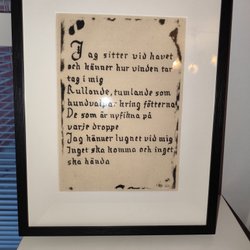 Jag sitter vid havet
och känner hur vinden tar
tag i mig
Rullande, tumlande som
hundvalpar kring fötterna
De som är nyfikna på
varje droppe
Jag känner lugnet vid mig
Inget ska komma och inget
ska hända